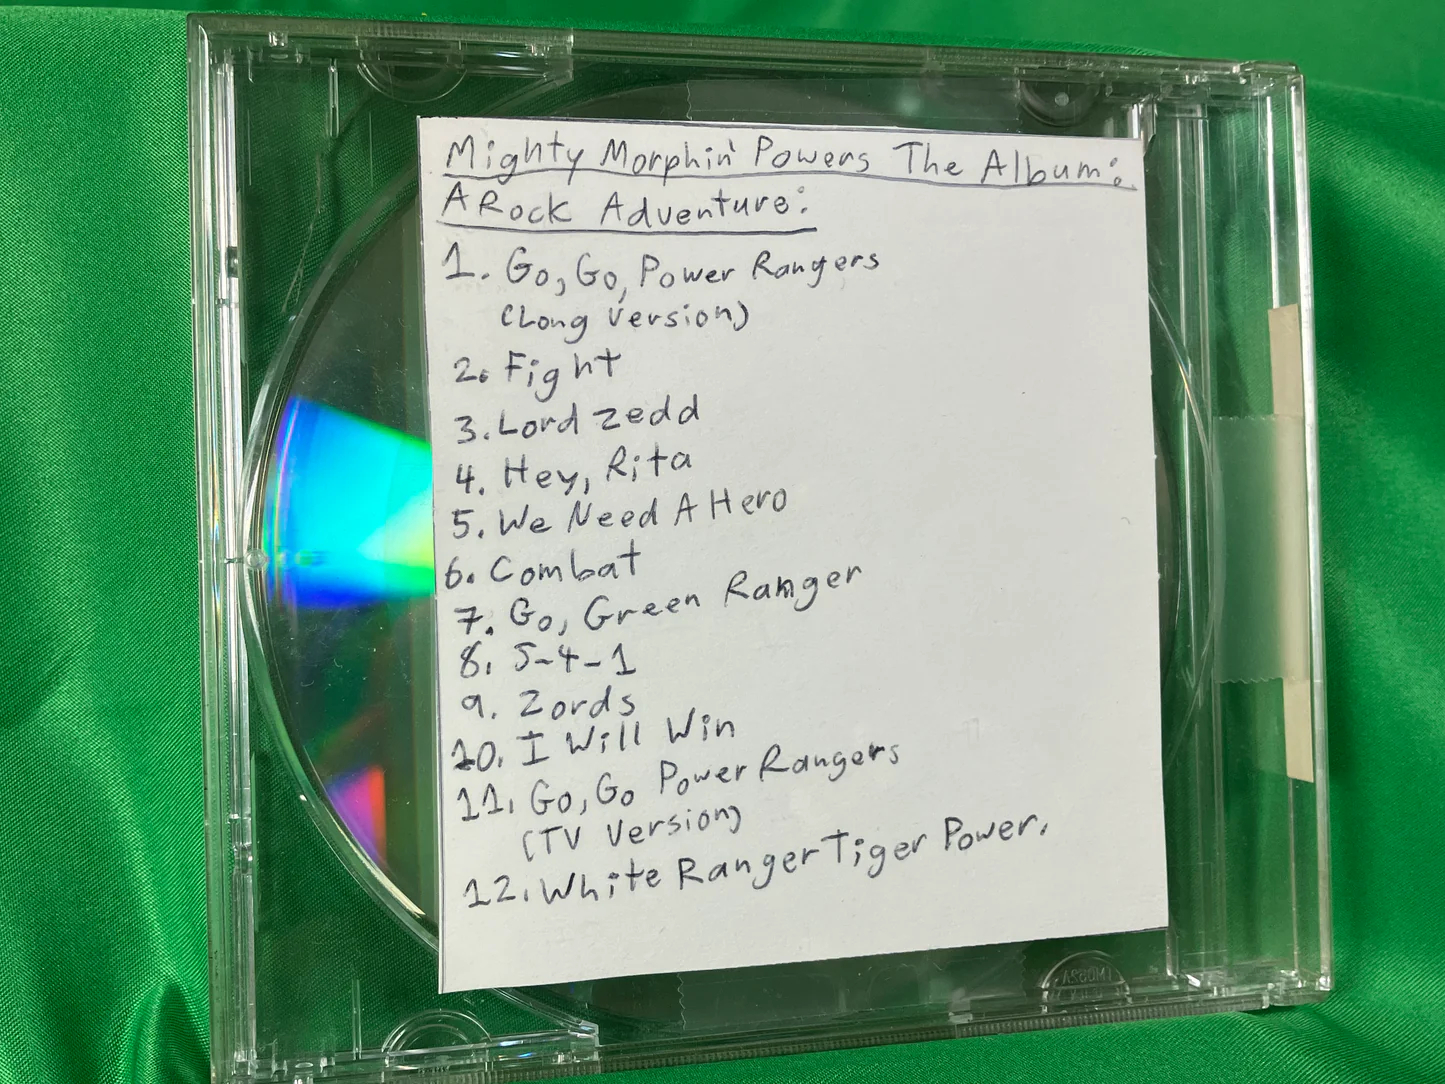 Mighty Morphin' Powers The Album:
A Rock Adventure:
1. Go, Go, Power Rangers
(Long Version)
2. Fight
3. Lord Zedd
4. Hey, Rita
5. We Need A Hero
6. Combat
7. Go, Green Ranger
8. 5-4-1
9. Zords
10. I Will Win
11. Go, Go Power Rangers
(TV Version)
12. White Ranger Tiger Power.